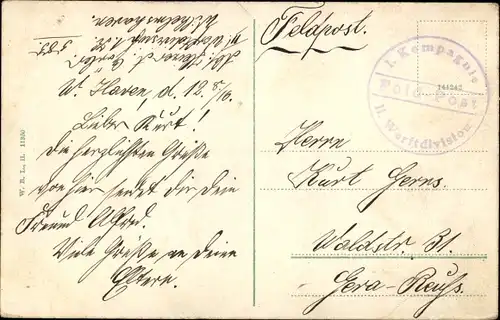 Feldpost.
I. Kompagnie
Feld-Post
II. Werftdivision
144242
W. Haven, d. 12. 8/16.
Lieber Kurt!
Die herzlichsten Grüße
von hier sendet dir dein
Freund Alfred.
Viele Grüße an deine
Eltern.
Herrn
Kurt Gerns.
Waldstr. 31.
Gera-Reuß.
W. B. L., H. 11350
Wilhelmshaven.